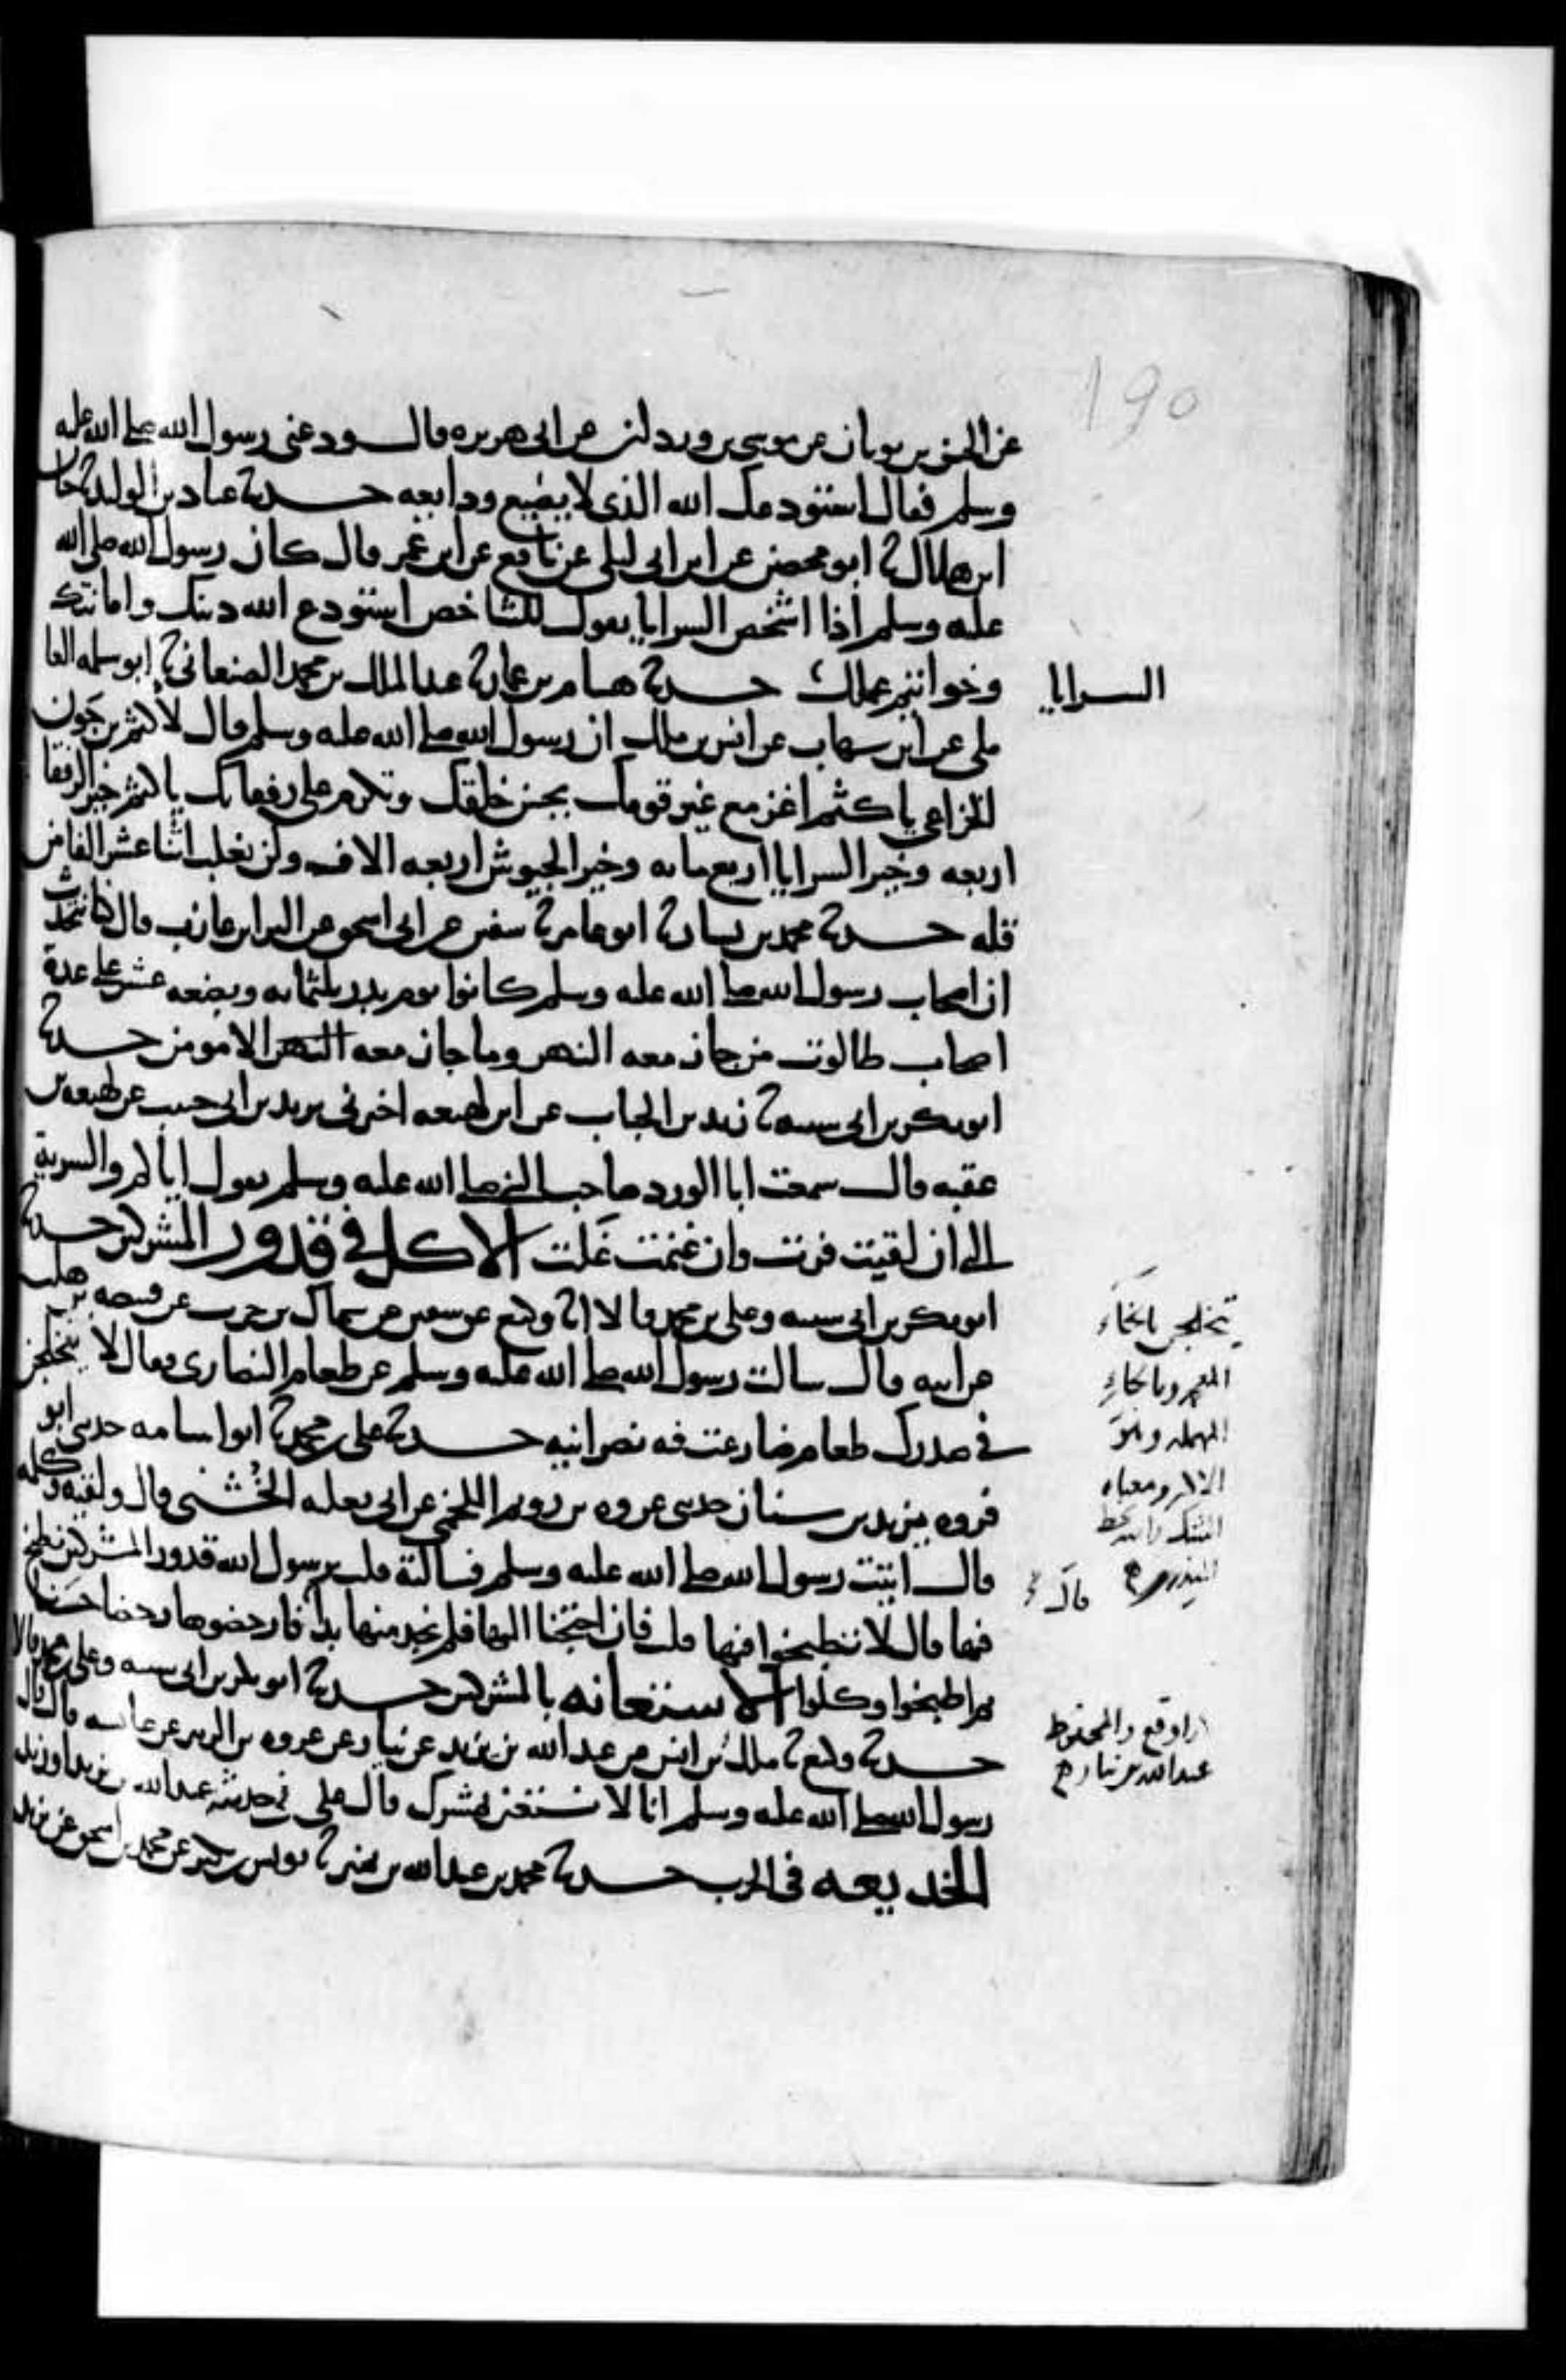 عن الحسن بن ثوبان عن موسى بن وردان عن ابى هريره قال ودعنى رسول الله صلى الله عليه
وسلم فقال استودعك الله الذى لا يضيع ودايعه حدثنا عباد بن الوليد ثنا حبان
ابن هلال ثنا ابو محصن عن ابن ابى ليلى عن نافع عن ابن عمر قال كان رسول الله صلى الله
عليه وسلم اذا اشخص السرايا يقول للشاخص استودع الله دينك وامانتك
وخواتيم عملك حدثنا هشام بن عمار ثنا عبد الملك بن محمد الصنعانى ثنا ابو سلمه العا
السرايا
ملى عن ابن شهاب عن انس بن ملك ان رسول الله صلى الله عليه وسلم قال لاكثم بن جون
الخزاعى يا كثم اغز مع غير قومك يحسن خلقك وتكرم على رفقايك يا اكثم خير الرفقا
اربعه وخير السرايا اربع مايه وخير الجيوش اربعه الاف ولن يغلب اثنا عشر الفا من
قله حدثنا محمد بن بشار ثنا ابو عامر ثنا سفين عن ابى اسحق عن البرا بن عازب قال كنا نتحدث
ان اصحاب رسول الله صلى الله عليه وسلم كانوا يوم بدر ثلثمايه وبضعه عشر على عدة
اصحاب طالوت من جاز معه النهر وما جاز معه النهر الا مومن حدثنا
ابو بكر بن ابى شيبه ثنا زيد بن الحباب عن ابن لهيعه اخبرنى يزيد بن ابى حبيب عن لهيعه بن
عقبه قال سمعت ابا الورد صاحب النبى صلى الله عليه وسلم يقول اياكم والسرية
التى ان لقيت فرت وان غنمت غلت الاكل فى قدور المشركين حدثنا
ابو بكر بن ابى شيبه وعلى بن محمد قالا ثنا وكيع عن سفين عن سماك بن حرب عن قبيصه بن هلب
عن ابيه قال سالت رسول الله صلى الله عليه وسلم عن طعام النصارى فقال لا يتخلجن
فى صدرك طعام ضارعت فيه نصرانيه حدثنا على بن محمد ثنا ابو اسامه حدثنى ابو
فروه يزيد بن سنان حدثنى عروه بن رويم اللخمى عن ابى ثعلبه الخشنى قال ولقيه وكلمه
قال اتيت رسول الله صلى الله عليه وسلم فسالتة قلت يرسول الله قدور المشركين نطبخ
فيها قال لا تطبخوا فيها قلت فان احتجنا اليها فلم نجد منها بدا قال فارحضوها رحضا حسنا
ثم اطبخوا وكلوا الاستعانه بالمشركين حدثنا ابو بكر بن ابى شيبه وعلى بن محمد قالا
حدثنا وكيع ثنا ملك بن انس عن عبد الله بن يزيد عن نيار عن عروه بن الزبير عن عايشه قالت قال
رسول الله صلى الله عليه وسلم انا لا نستعين بمشرك قال على فى حديثه عبد الله بن يزيد او زيد
الخديعه فى الحرب حدثنا محمد بن عبد الله بن نمير ثنا يونس بن بكير عن محمد بن اسحق عن يزيد
يتخلجن بالخاء
المعجمه وبالحاء
المهمله وهو
الاكثر ومعناه
الشك
المنذرى
قال
كذا وقع والمحفوظ
عبد الله بن نيار
190